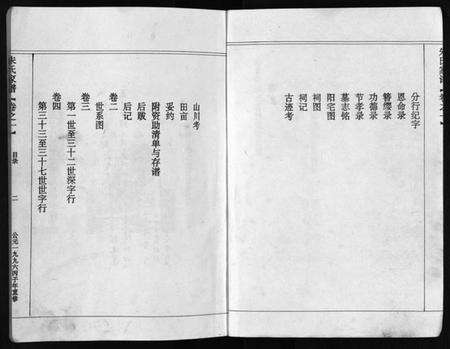 分行纪字
恩命录
簪缨录
功德录
节孝录
墓志铭
阳宅图
祠图
祠记
古迹考
山川考
田亩
妥约
附资助清单与存谱
后跋
后记
卷二
世系图
卷三
第一世至三十二世深字行
卷四
第三十三至三十七世世字行
宋氏家谱【卷之一】
目录
二
公元一九九六丙子年重修